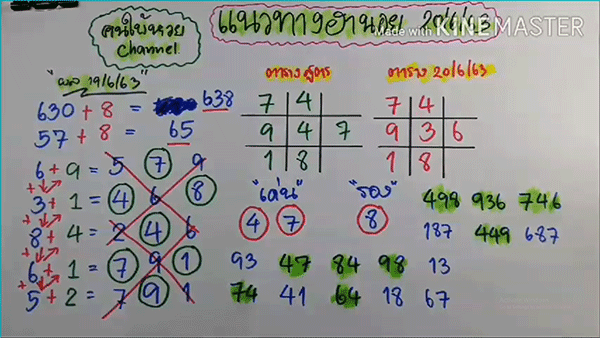 คนใบ้หวย
Channel
แนวทางฮานอย 20/6/63
Made with KINEMASTER
"ผล 19/6/63"
630 + 8 = 638
57 + 8 = 65
ตารางสูตร
7 4
9 4 7
1 8
ตาราง 20/6/63
7 4
9 3 6
1 8
6 + 9 = 5 7 9
3 + 1 = 4 6 8
8 + 4 = 2 4 6
6 + 1 = 7 9 1
5 + 2 = 7 9 1
"เด่น" "รอง"
4 7 8
498 936 746
187 449 687
93 47 84 98 13
74 41 64 18 67